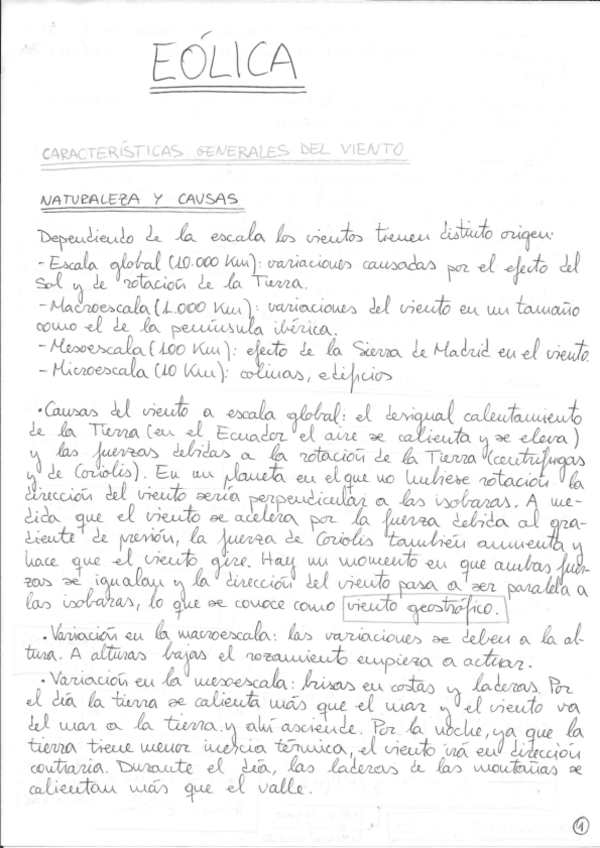 EÓLICA
CARACTERÍSTICAS GENERALES DEL VIENTO
NATURALEZA Y CAUSAS
Dependiendo de la escala los vientos tienen distinto origen:
- Escala global (10.000 Km): variaciones causadas por el efecto del
Sol y de rotación de la Tierra.
- Macroescala (1.000 Km): variaciones del viento en un tamaño
como el de la península ibérica.
- Mesoescala (100 Km): efecto de la Sierra de Madrid en el viento.
- Microescala (10 Km): colinas, edificios
• Causas del viento a escala global: el desigual calentamiento
de la Tierra (en el Ecuador el aire se calienta y se eleva)
y las fuerzas debidas a la rotación de la Tierra (centrífugas
y de Coriolis). En un planeta en el que no hubiese rotación la
dirección del viento sería perpendicular a las isobaras. A me-
dida que el viento se acelera por la fuerza debida al gra-
diente de presión, la fuerza de Coriolis también aumenta y
hace que el viento gire. Hay un momento en que ambas fuer-
zas se igualan y la dirección del viento pasa a ser paralela a
las isobaras, lo que se conoce como viento geostrófico.
• Variación en la macroescala: las variaciones se deben a la al-
tura. A alturas bajas el rozamiento empieza a actuar.
• Variación en la mesoescala: brisas en costas y laderas. Por
el día la tierra se calienta más que el mar y el viento va
del mar a la tierra y ahí asciende. Por la noche, ya que la
tierra tiene menor inercia térmica, el viento irá en dirección
contraria. Durante el día, las laderas de las montañas se
calientan más que el valle.
1